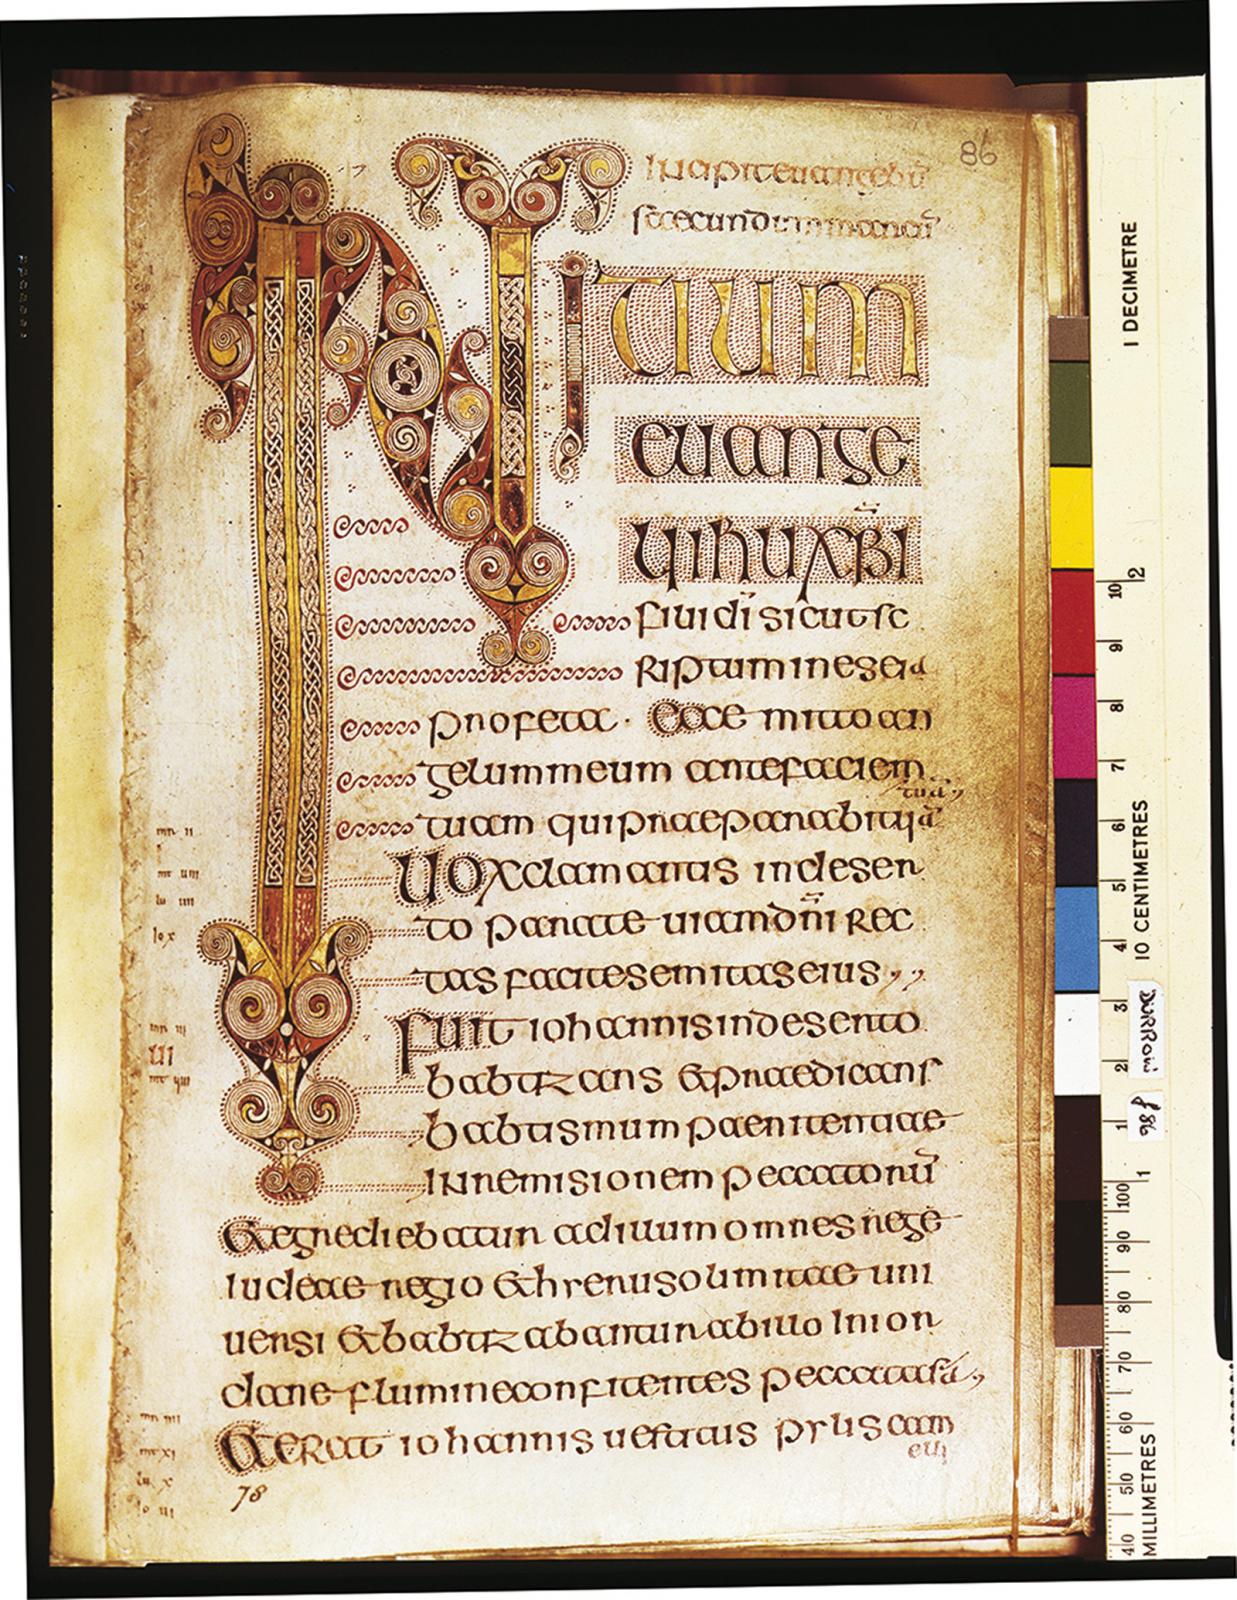 86
Incipit euangeliū
secundum marcū
INITIUM
euange
lii ihu xp̄i
fili di sicut sc
riptum in eseia
profeta · Ecce mitto an
gelum meum ante faciem
tuam qui praeparabit uiā
tuā
Uox clamantis in deser
to parate uiam dn̄i rec
tas facite semitas eius
Fuit iohannis in deserto
babtizans & praedicans
babtismum paenitentiae
in remisionem peccatorū
Et egrediebatur ad illum omnes rege
iudeae regio & hierusolimitae uni
uersi & babtizabantur ab illo in ior
dane flumine confitentes peccata sa
Et erat iohannis uestitus pylus cam
eli
78
1 DECIMETRE
10 CENTIMETRES
MILLIMETRES
2
10
9
8
7
6
5
4
3
2
1
1
100
90
80
70
60
50
40
Durrow
f 86